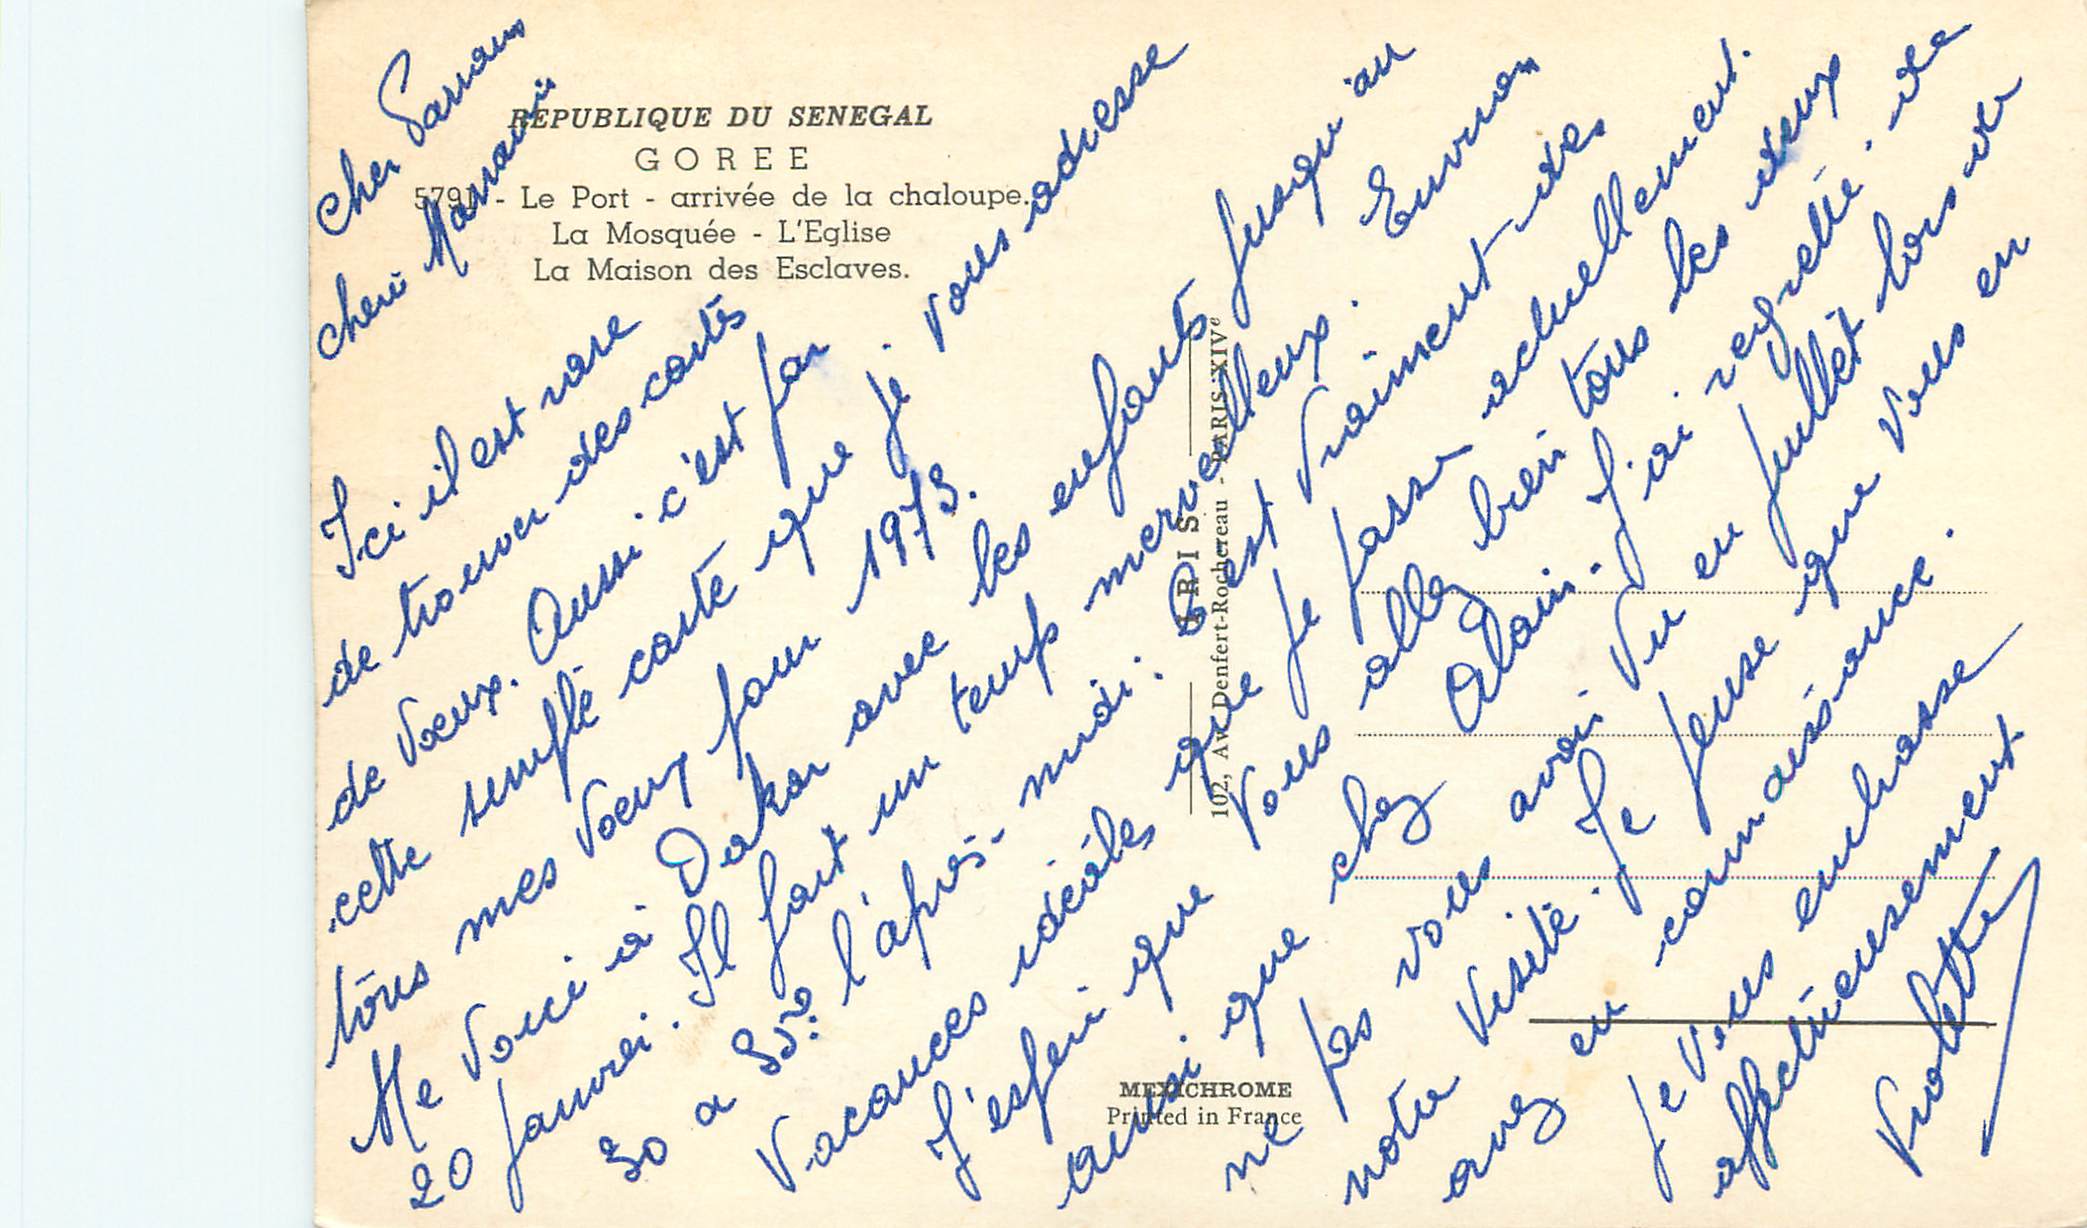 REPUBLIQUE DU SENEGAL
GOREE
5791 - Le Port - arrivée de la chaloupe.
La Mosquée - L'Eglise
La Maison des Esclaves.
Cher Parrain
Chere Marraine
Ici il est rare
de trouver des cartes
de voeux. Aussi c'est par
cette simple carte que je vous adresse
tous mes voeux pour 1973.
Me voici à Dakar avec les enfants jusqu'au
20 janvier. Il fait un temps merveilleux. Environ
30 a 35° l'après-midi. C'est vraiment des
vacances idéales que je passe actuellement.
J'espere que vous allez bien tous les deux
ainsi que chez Alain. J'ai regretté de
ne pas vous avoir vu en juillet lors de
notre visite. Je pense que vous en
avez eu connaissance.
Je vous embrasse
affectueusement
Violette
IRIS
102, Av. Denfert-Rochereau - PARIS-XIVe
MEXICHROME
Printed in France